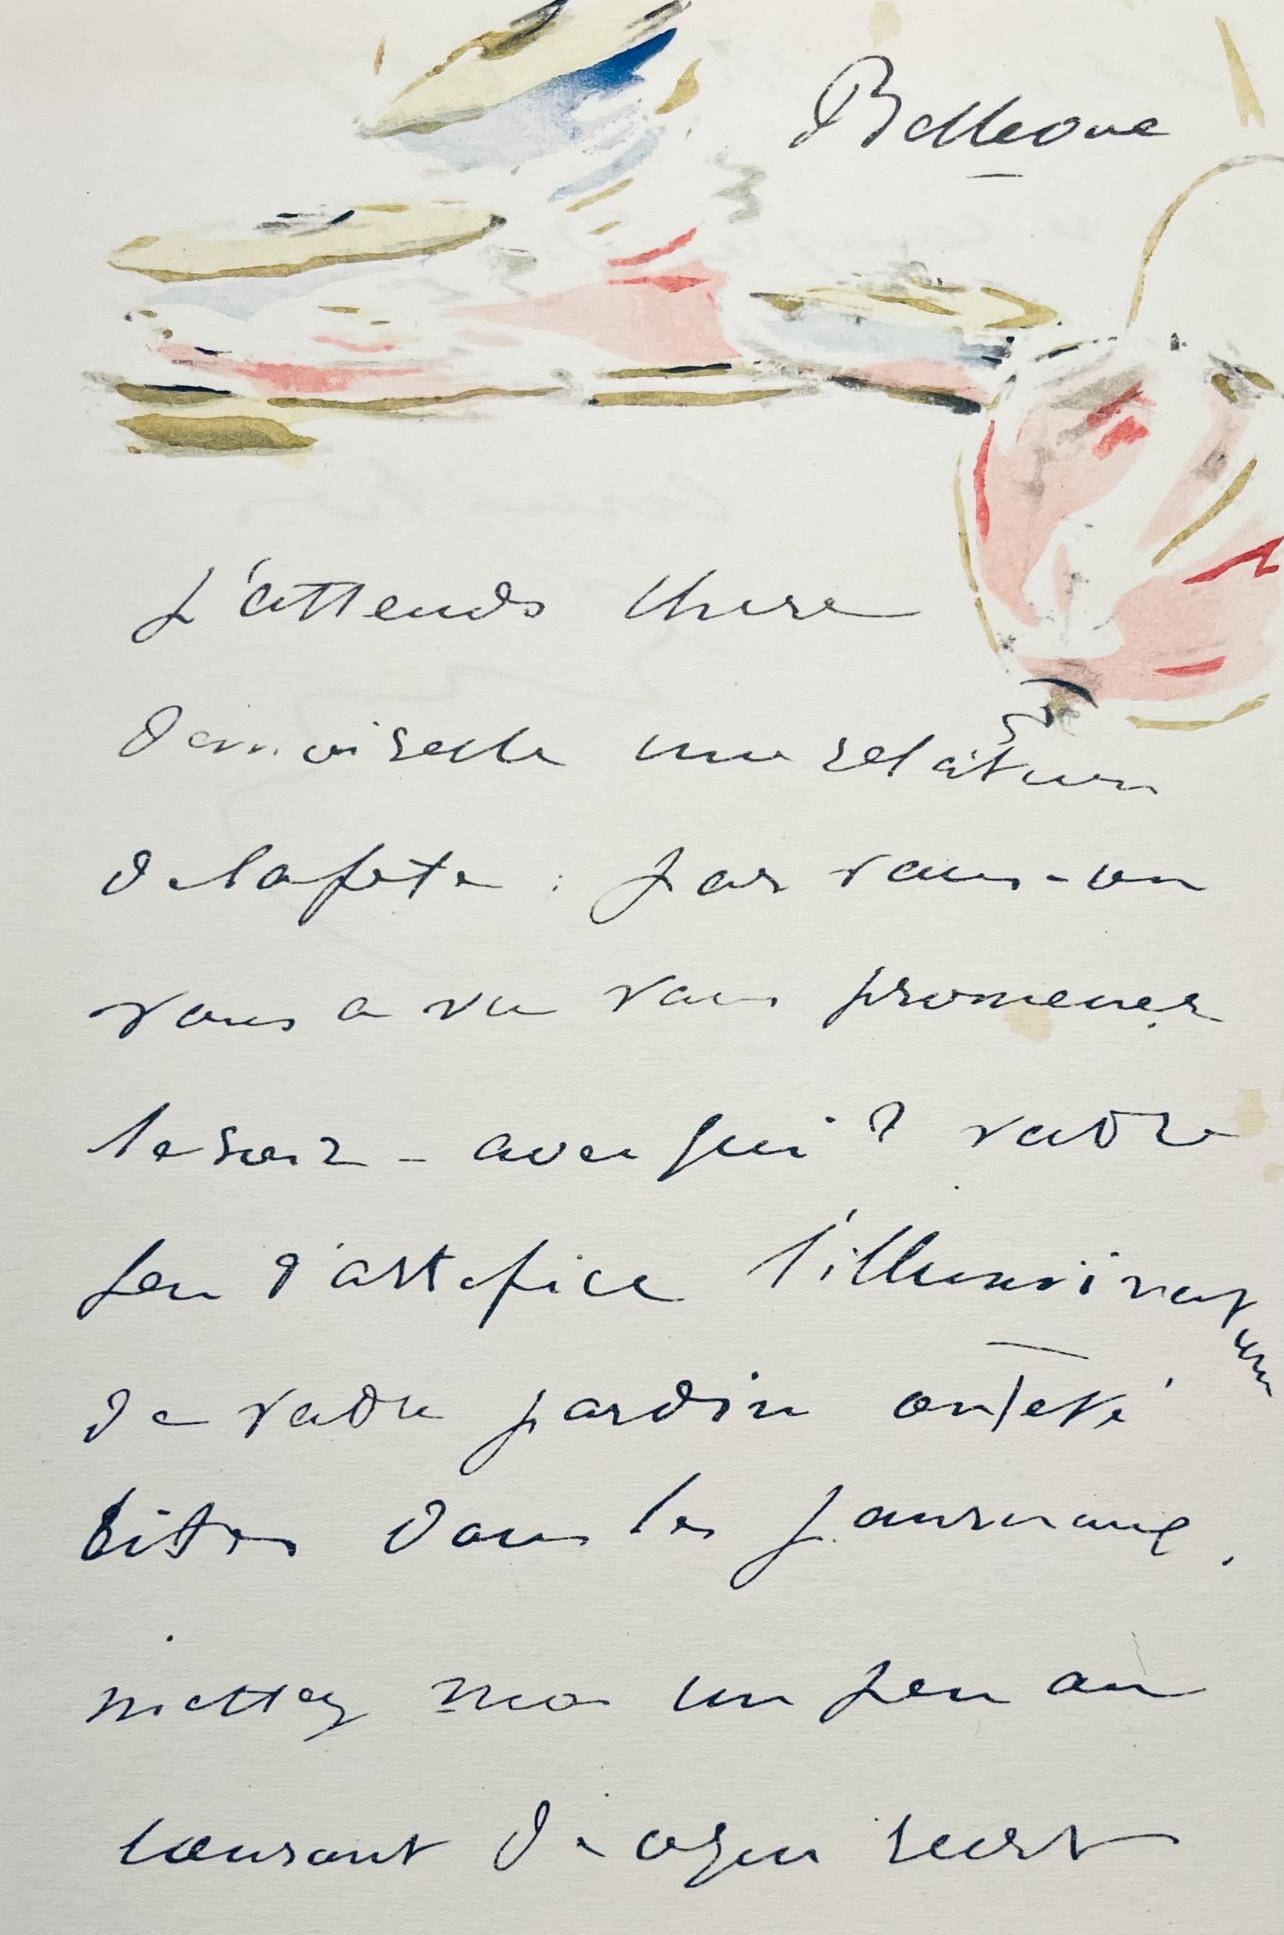 Bellevue
J'attends chère
demoiselle une relation
de la fete : par vous - on
vous a vu vous promener
le soir - avec qui ? votre
feu d'artifice l'illumination
de votre jardin ont été
cités dans les journaux.
mettez moi un peu au
courant de ce qui sert